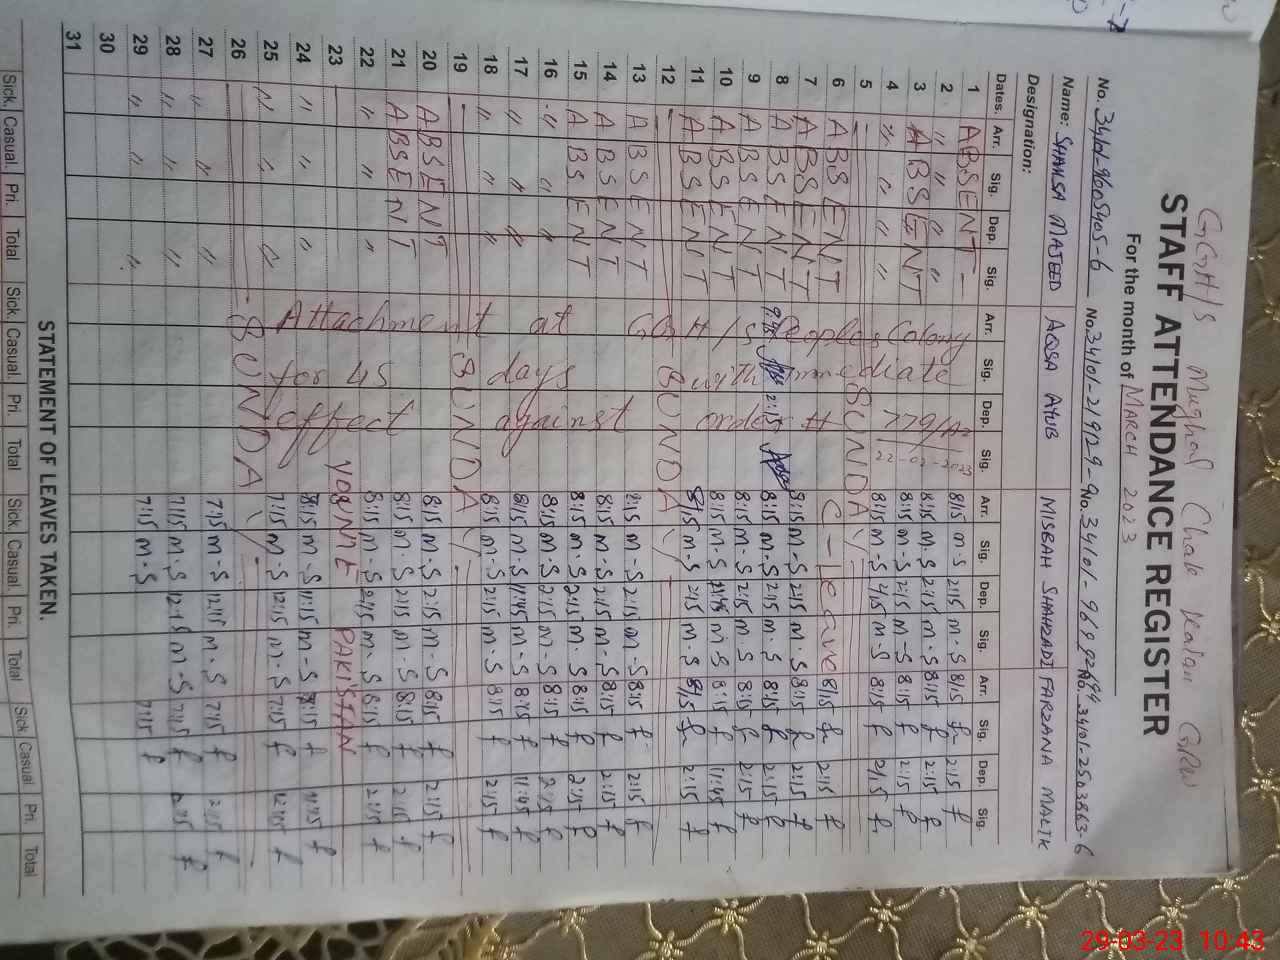 GGH/S Mughal Chak
STAFF ATTENDANCE REGISTER
For the month of MARCH 2023
Name: SHAMSA MAJEED AQSA AYUB MISBAH SHAHZADI FARZANA MALIK
Designation:
Dates. Arr. Sig. Dep. Sig. Arr. Sig. Dep. Sig. Arr. Sig. Dep. Sig. Arr. Sig. Dep. Sig.
1 ABSENT 8:15 M.S 2:15 M.S 8:15 2:15
2 " " " " 8:15 M.S 2:15 M.S 8:15 2:15
3 ABSENT 8:15 M.S 2:15 M.S 8:15 2:15
4 " " " " 8:15 M.S 2:15 M.S 8:15 2:15
5 SUNDAY
6 ABSENT C-leave 8:15 2:15
7 ABSENT 8:15 M.S 2:15 M.S 8:15 2:15
8 ABSENT 2:15 8:15 M.S 2:15 M.S 8:15 2:15
9 ABSENT 8:15 M.S 2:15 M.S 8:15 2:15
10 ABSENT 8:15 M.S 11:45 M.S 8:15 11:45
11 ABSENT 8:15 M.S 2:15 M.S 8:15 2:15
12 SUNDAY
13 ABSENT 8:15 M.S 2:15 M.S 8:15 2:15
14 ABSENT 8:15 M.S 2:15 M.S 8:15 2:15
15 ABSENT 8:15 M.S 2:15 M.S 8:15 2:15
16 " " " " 8:15 M.S 2:15 M.S 8:15 2:15
17 " " " " 8:15 M.S 11:45 M.S 8:15 11:45
18 " " " " 8:15 M.S 2:15 M.S 8:15 2:15
19 SUNDAY
20 ABSENT 8:15 M.S 2:15 M.S 8:15 2:15
21 ABSENT 8:15 M.S 2:15 M.S 8:15 2:15
22 " " " " 8:15 M.S 2:15 M.S 8:15 2:15
23 YOUNME PAKISTAN
24 " " " " 8:15 M.S 11:15 M.S 8:15
25 " " " " 7:15 M.S 12:15 M.S 7:15
26 SUNDAY
27 " " " " 7:15 M.S 12:15 M.S 7:15
28 " " " " 7:15 M.S 12:15 M.S 7:15
29 " " " " 7:15 M.S 7:15
30
31
Attachment at GGH/S Peoples Colony
for 45 days with immediate
effect against order #
22-02-2023
STATEMENT OF LEAVES TAKEN.
Sick. Casual. Pri. Total Sick. Casual. Pri. Total Sick. Casual. Pri. Total Sick Casual Pri. Total
29-03-23 10:43